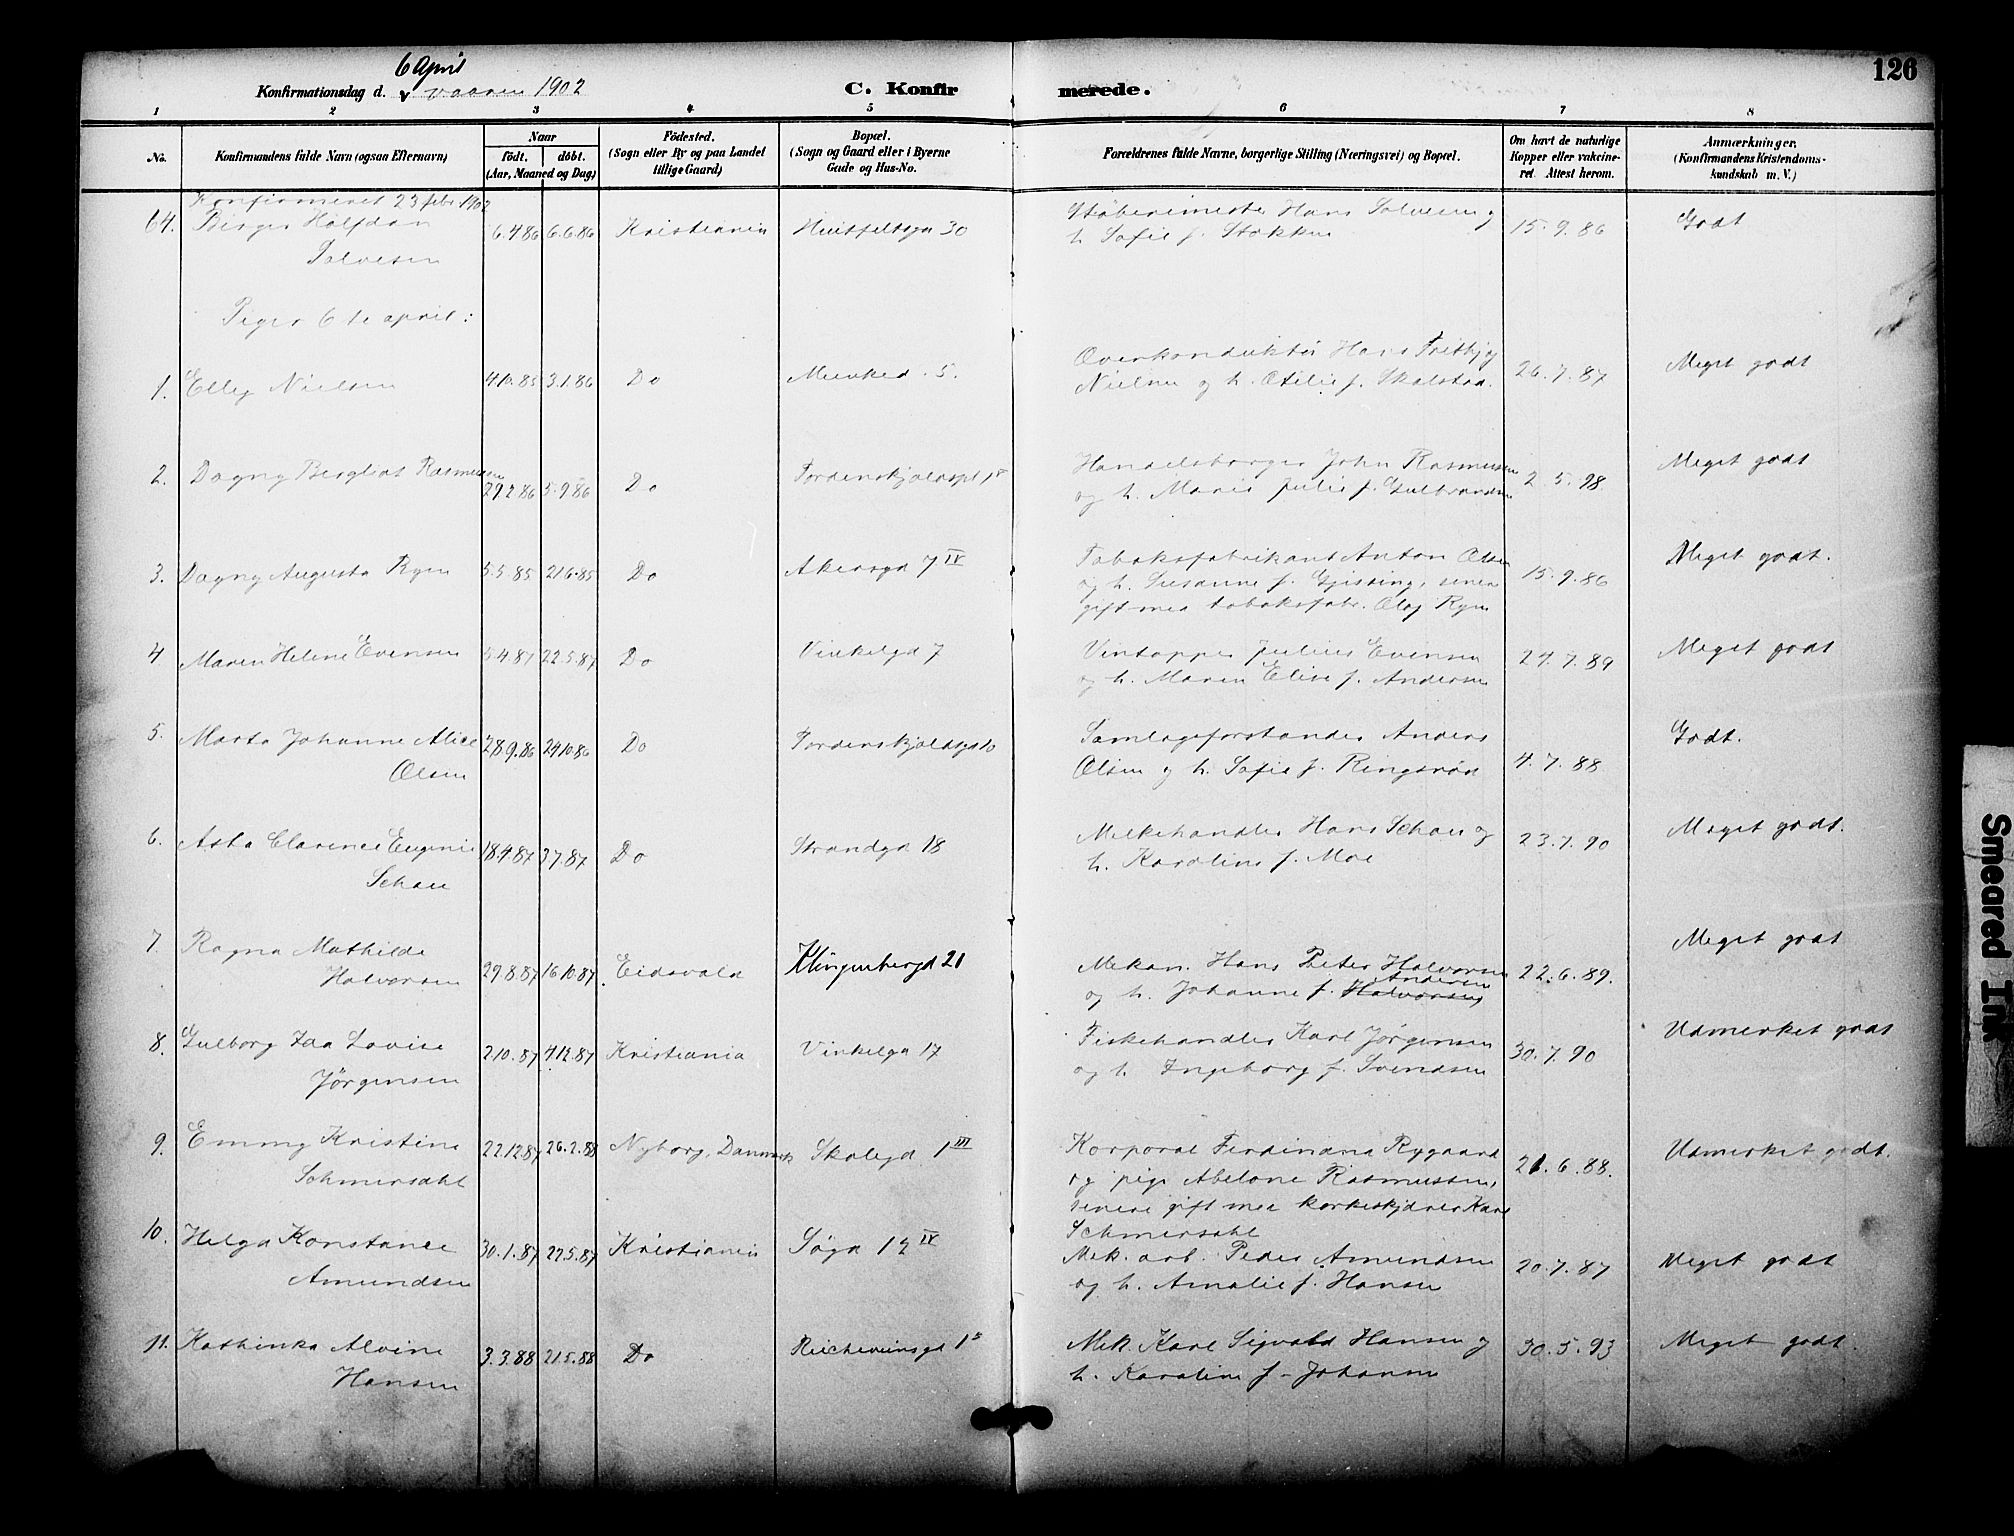 126
6 April
Konfirmationsdag d. vaaren 1902
C. Konfirmerede.
1 2 3 4 5 6 7 8
No.
Konfirmandens fulde Navn (ogsaa Efternavn)
Naar
födt. döbt.
(Aar, Maaned og Dag)
Födested.
(Sogn eller By og paa Landet
tillige Gaard)
Bopæl.
(Sogn og Gaard eller i Byerne
Gade og Hus-No.
Forældrenes fulde Navne, borgerlige Stilling (Næringsvei) og Bopæl.
Om havt de naturlige
Kopper eller vakcine-
ret. Attest herom.
Anmærkninger.
(Konfirmandens Kristendoms-
kundskab m. V.)
Konfirmeret 23 febr. 1902
64. Birger Halfdan 6.4.86 6.6.86 Kristiania Huitfeltsgd 30 Hans Salvesen og 15.9.86 Godt
Salvesen h. Sofie f. Stokke
Piger 6te april:
1. Elley Nielsen 4.10.85 3.1.86 Do Munked. 5. Overkonduktør Hans Frithj 26.7.87 Meget godt
Nielsen og h. Otilie f. Skalstad.
2. Dagny Bergliot Rasmussen 29.2.86 5.9.86 Do Tordenskjoldspl 1 Handelsborger John Rasmussen 2.5.98. Meget godt
og h. Marie Julie f. Gulbrandsen
3. Dagny Augusta Ryen 5.5.85 21.6.85 Do Akersgd 7 IV Tobaksfabrikant Anton Olsen 15.9.86 Meget godt.
og h. Susanne f. Gjissing, senere
gift med tobaksfabr. Olaf Ryen
4 Maren Helene Evensen 5.4.87 22.5.87 Do Vinkelgd 7 Vintapper Julius Evensen 24.7.89 Meget godt
og h. Maren Elise f. Andersen
5. Marta Johanne Alice 28.9.86 24.10.86 Do Tordenskjoldsgd 10 Samlagsforstander Anders 4.7.88 Godt.
Olsen Olsen og h. Sofie f. Ringsrød
6. Asta Clarence Eugenie 18.4.87 3.7.87 Do Strandgd 18 Melkehandler Hans Schau og 23.7.90 Meget godt.
Schau h. Karoline f. Moe
7. Ragna Mathilde 29.8.87 16.10.87 Eidsvold Klingenbergd 21 Mekan. Hans Peter Halvorsen 22.6.89. Meget godt
Andersen
Halvorsen og h. Johanne f. Halvorsen
8. Gulborg Ida Lovise 2.10.87 4.12.87 Kristiania Vinkelgd 17 Fiskehandler Karl Jørgensen 30.7.90 Udmerket godt
Jørgensen og h. Ingeborg f. Svendsen
9. Emmy Kristine 22.12.87 26.2.88 Nyborg, Danmark Skolegd. 1 III Korporal Ferdinand Rygaard 21.6.88. Udmerket godt.
Schmersahl og pige Abelone Rasmussen,
senere gift med korkeskjærer Karl
Schmersahl
10. Helga Konstance 30.1.87 22.5.87 Kristiania Søgd 12 IV Mek. arb. Peder Amundsen 20.7.87 Meget godt
Amundsen og h. Amalie f. Hansen
11. Kathinka Alvine 3.3.88 21.5.88 Do Mek. Karl Sigvald Hansen og 30.5.93 Meget godt.
Hansen h. Karoline f. Johansen
Smeared Ink